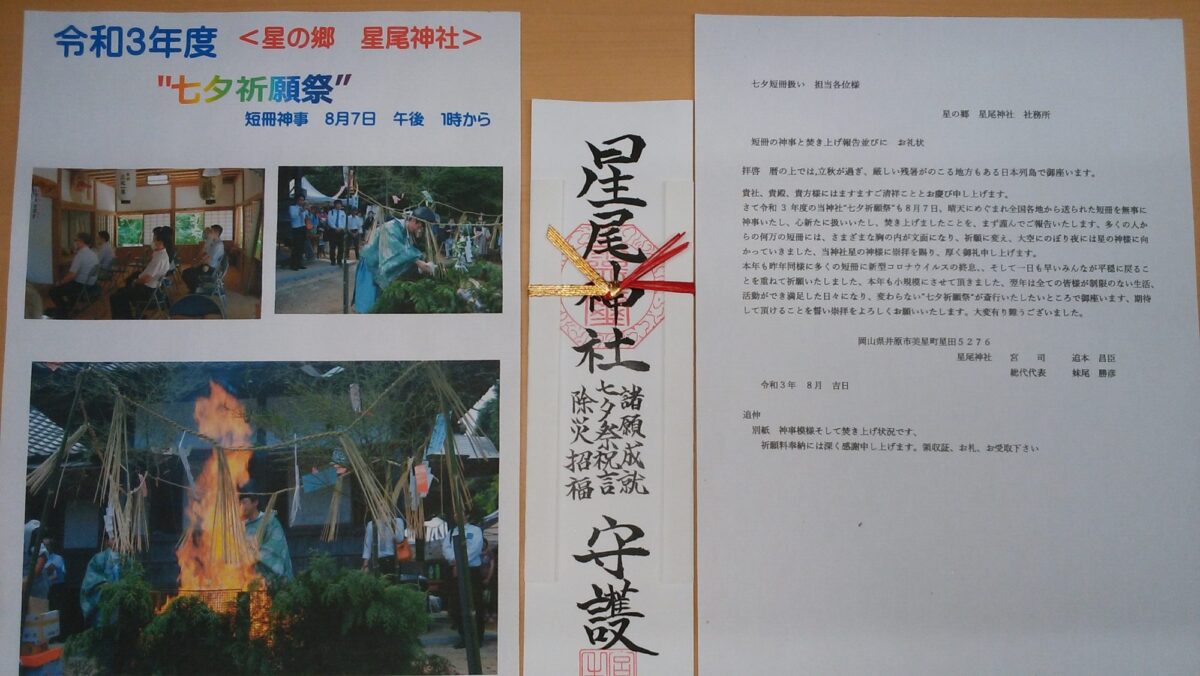 令和3年度 <星の郷 星尾神社>
"七夕祈願祭"
短冊神事 8月7日 午後 1時から
星尾神社
諸願成就
七夕祭祝言
除災招福
守護
七夕短冊扱い 担当各位様
星の郷 星尾神社 社務所
短冊の神事と焚き上げ報告並びに お礼状
拝啓 暦の上では,立秋が過ぎ、厳しい残暑がのこる地方もある日本列島で御座います。
貴社、貴殿、貴方様にはますますご清祥こととお慶び申し上げます。
さて令和 3 年度の当神社"七夕祈願祭"も8月7日、晴天にめぐまれ全国各地から送られた短冊を無事に
神事いたし、心新たに扱いいたし、焚き上げましたことを、まず謹んでご報告いたします、多くの人か
らの何万の短冊には、さまざまな胸の内が文面になり、祈願に変え、大空にのぼり夜には星の神様に向
かっていきました、当神社星の神様に崇拝を賜り、厚く御礼申し上げます。
本年も昨年同様に多くの短冊に新型コロナウイルスの終息、、そして一日も早いみんなが平穏に戻るこ
とを重ねて祈願いたしました、本年も小規模にさせて頂きました、翌年は全ての皆様が制限のない生活、
活動ができ満足した日々になり、変わらない"七夕祈願祭"が斎行いたしたいところで御座います、期待
して頂けることを誓い崇拝をよろしくお願いいたします。大変有り難うございました。
岡山県井原市美星町星田5276
星尾神社 宮 司 追本 昌臣
総代代表 妹尾 勝彦
令和3年 8月 吉日
追伸
別紙 神事模様そして焚き上げ状況です、
祈願料奉納には深く感謝申し上げます。領収証、お礼、お受取下さい